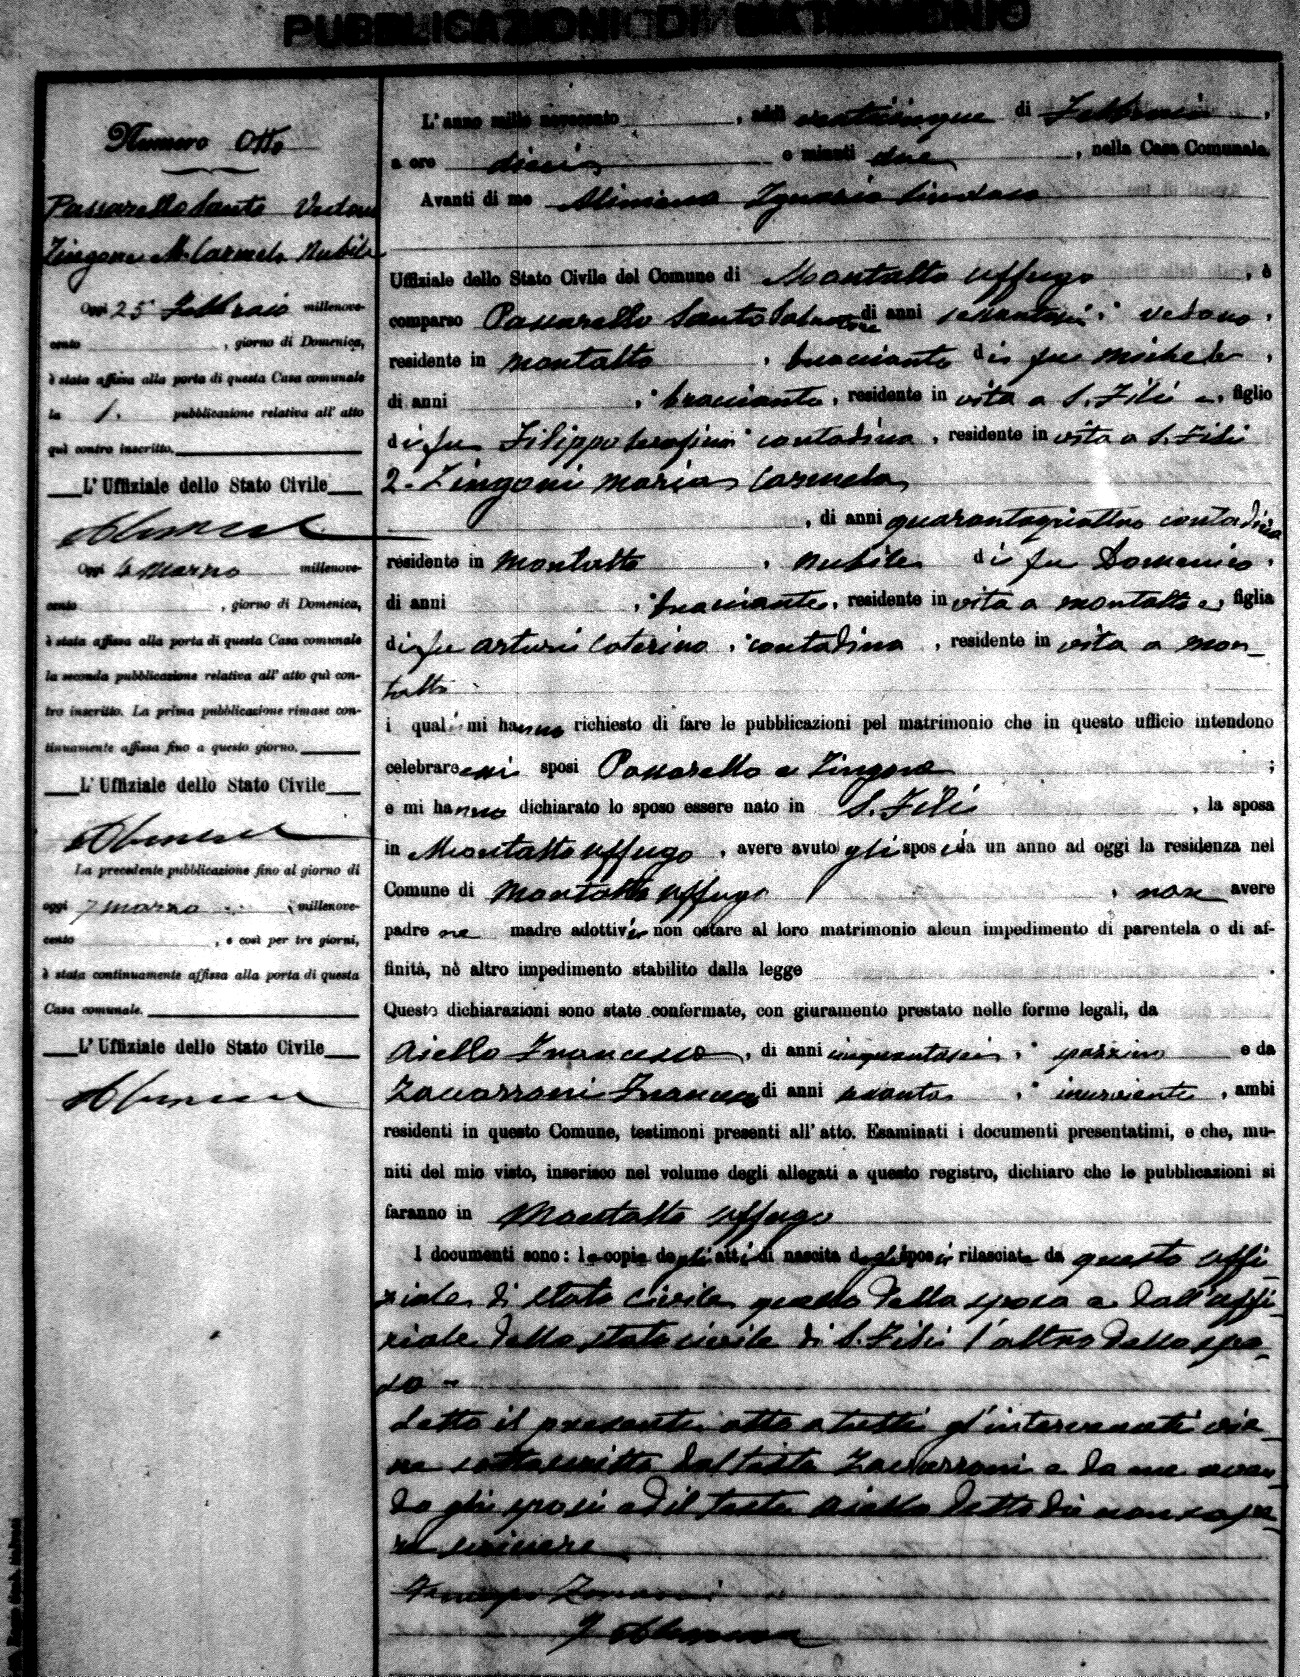 PUBBLICAZIONI DI MATRIMONIO
Numero Otto
Passarello Santo Vedovo
Zingone M. Carmela Nubile
Oggi 25 Febbraio millenove-
cento , giorno di Domenica,
è stata affissa alla porta di questa Casa comunale
la 1. pubblicazione relativa all' atto
quì contro inscritto.
L' Uffiziale dello Stato Civile
Oggi 4 Marzo millenove-
cento , giorno di Domenica,
è stata affissa alla porta di questa Casa comunale
la seconda pubblicazione relativa all' atto quì con-
tro inscritto. La prima pubblicazione rimase con-
tinuamente affissa fino a questo giorno.
L' Uffiziale dello Stato Civile
La precedente pubblicazione fino al giorno di
oggi 7 marzo millenove-
cento , e così per tre giorni,
è stata continuamente affissa alla porta di questa
Casa comunale.
L' Uffiziale dello Stato Civile
L' anno mille novecento , addì venticinque di Febbraio ,
a ore dieci e minuti due , nella Casa Comunale.
Avanti di me Alimena Ignazio Sindaco
Uffiziale dello Stato Civile del Comune di Montalto Uffugo , è
comparso Passarello Santo Salvatore di anni sessantasei vedovo ,
residente in montalto , bracciante di fu Michele ,
di anni , bracciante , residente in vita a S. Fili e , figlio
di fu Filippo Serafina contadina , residente in vita a S. Fili
2. Zingoni Maria Carmela
, di anni quarantaquattro contadina
residente in Montalto , nubile di fu Domenico ,
di anni , bracciante , residente in vita a montalto e , figlia
di fu Arturi Caterina , contadina , residente in vita a mon_
talto
i quali mi hanno richiesto di fare le pubblicazioni pel matrimonio che in questo ufficio intendono
celebrare essi sposi Passarello e Zingone ;
e mi hanno dichiarato lo sposo essere nato in S. Fili , la sposa
in Montalto Uffugo , avere avuto gli sposi da un anno ad oggi la residenza nel
Comune di Montalto Uffugo , non avere
padre ne madre adottivi, non ostare al loro matrimonio alcun impedimento di parentela o di af-
finità, nè altro impedimento stabilito dalla legge .
Queste dichiarazioni sono state confermate, con giuramento prestato nelle forme legali, da
Aiello Francesco , di anni cinquantasei , spazzino e da
Zaccarroni Francesco di anni sessanta , inserviente , ambi
residenti in questo Comune, testimoni presenti all' atto. Esaminati i documenti presentatimi, e che, mu-
niti del mio visto, inserisco nel volume degli allegati a questo registro, dichiaro che le pubblicazioni si
faranno in Montalto Uffugo
I documenti sono: le copie degli atti di nascita degli sposi rilasciate da questo uffi_
ziale di stato civile quello della sposa e dall'uffi_
ziale dello stato civile di S. Fili l'altro dello spo_
so -
Letto il presente atto a tutti gl'intervenuti vie_
ne sottoscritto dal teste Zaccarroni e da me aven_
do gli sposi ed il teste Aiello detto di non sape_
re scrivere